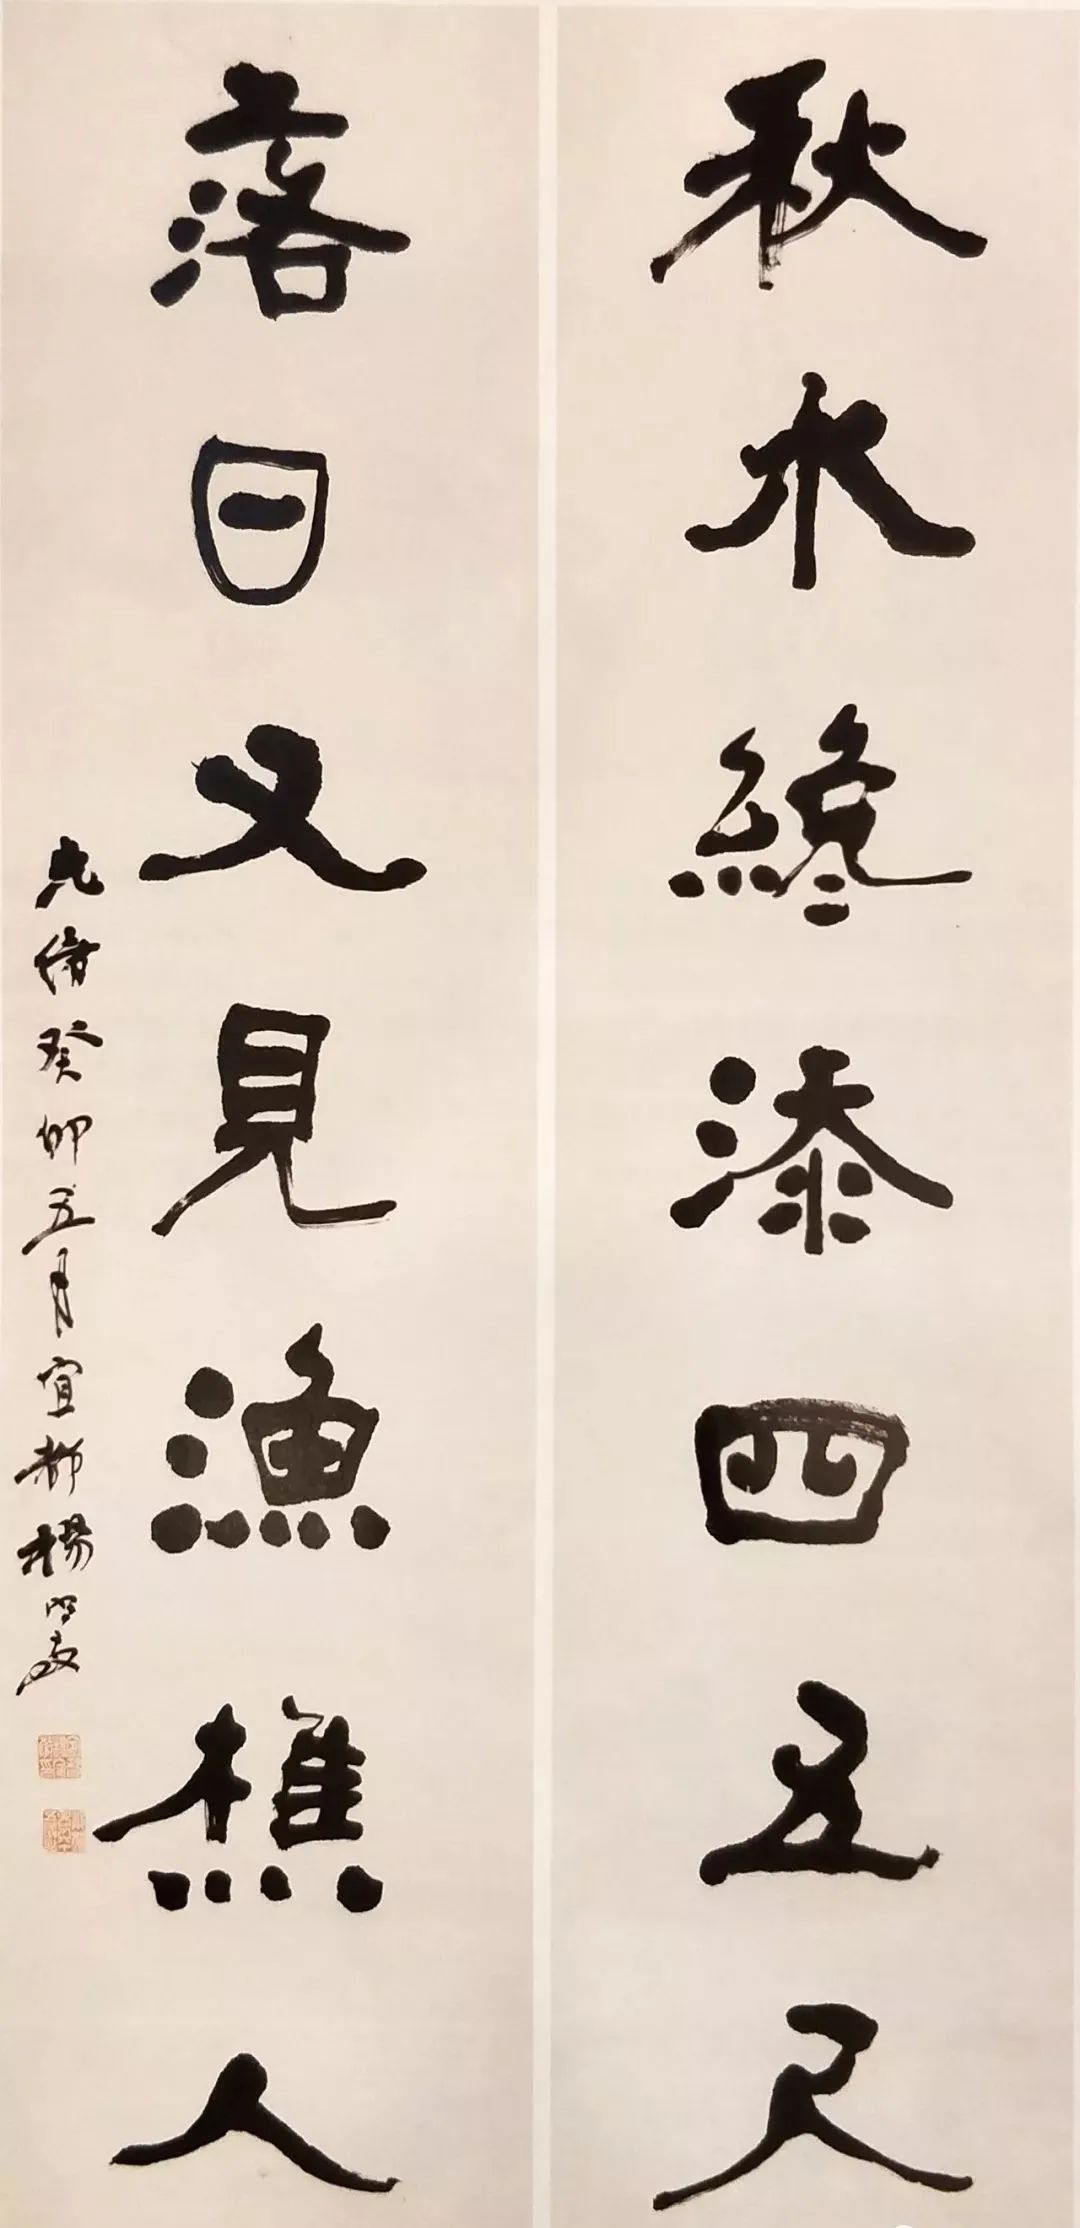 秋水纔添四五尺
落日又見漁樵人
光緒癸卯五月宜都楊守敬